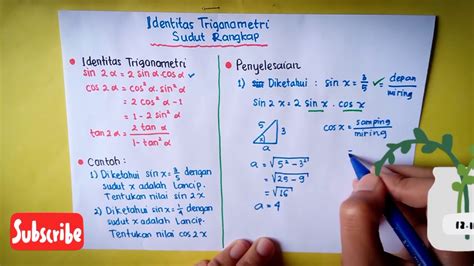 Identitas Trigonometri
Sudut Rangkap
• Identitas Trigonometri
sin 2α = 2 sin α . cos α ✓
cos 2α = cos² α - sin² α
= 2 cos² α - 1
= 1 - 2 sin² α
tan 2α = 2 tan α / 1 - tan² α
• Contoh :
1) Diketahui sin x = 3/5 dengan
sudut x adalah Lancip.
Tentukan nilai sin 2x
2) Diketahui sin x = 1/4 dengan
sudut x adalah Lancip.
Tentukan nilai cos 2x
• Penyelesaian
1) Diketahui : sin x = 3/5 = depan/miring
sin 2x = 2 sin x . cos x
5
3
a
cos x = samping/miring
=
a = √5² - 3²
= √25 - 9
= √16
a = 4
Subscribe